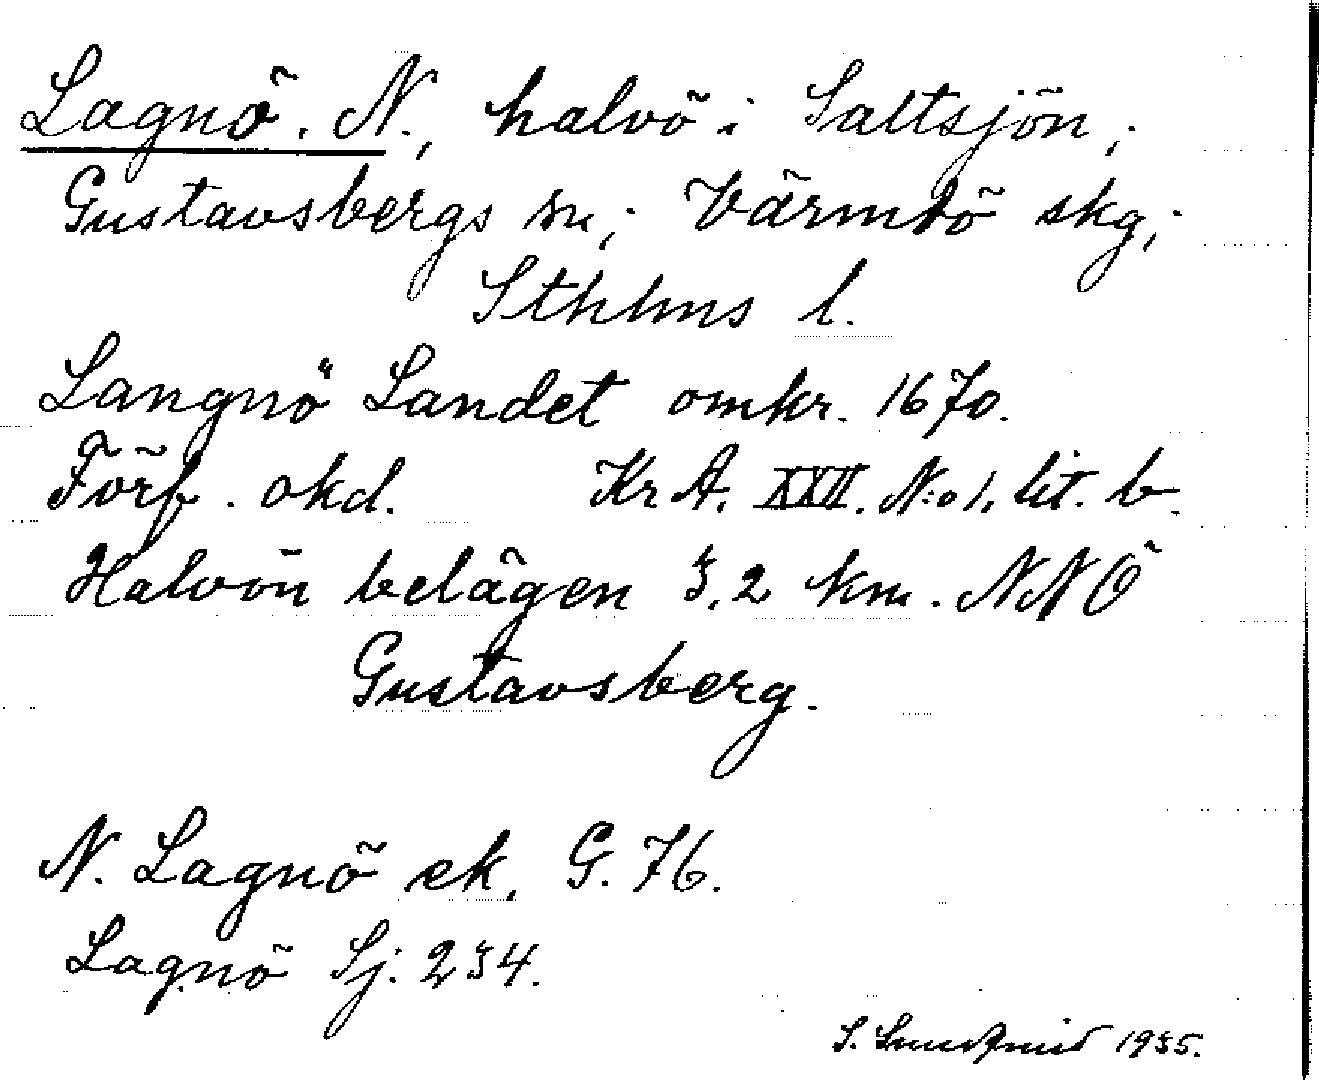 Lagnö. N., halvö i Saltsjön,;
Gustavsbergs sn,; Värmdö skg,;
Sthlms l.
Langnö Landet omkr. 1670.
Förf. okd. Kr A. XXII. N:o 1. lit. b.
Halvön belägen 3,2 km. NNÖ
Gustavsberg.
N. Lagnö ek. G. 76.
Lagnö Sj. 234.
S. 1935.